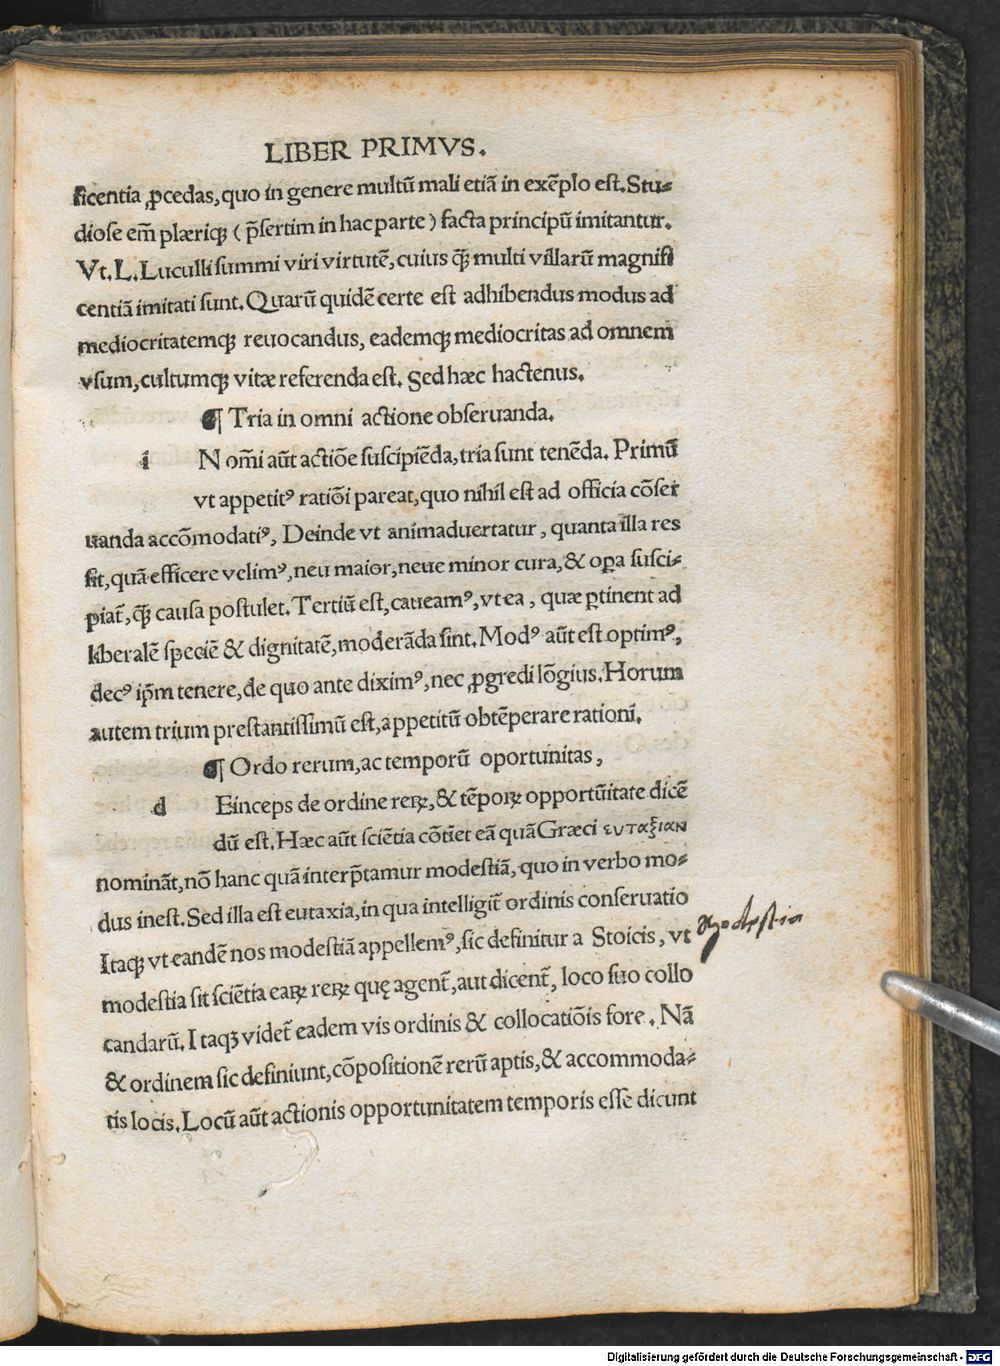 LIBER PRIMVS.
ficentia ꝓcedas, quo in genere multū mali etiā in exēplo est. Stu⸗
diose em̄ plæriqꝫ ( p̄sertim in hac parte ) facta principū imitantur.
Vt. L. Luculli summi viri virtutē, cuius qꝫ̄ multi villarū magnifi
centiā imitati sunt. Quarū quidē certe est adhibendus modus ad
mediocritatemqꝫ reuocandus, eademqꝫ mediocritas ad omnem
vsum, cultumqꝫ vitæ referenda est. Sed hæc hactenus.
¶ Tria in omni actione obseruanda.
i N om̄i aūt actiōe suscipiēda, tria sunt tenēda. Primū
vt appetitꝰ ratiōi pareat, quo nihil est ad officia cōser
uanda accōmodatiꝰ, Deinde vt animaduertatur, quanta illa res
sit, quā efficere velimꝰ, neu maior, neue minor cura, & oꝑa susci⸗
piat̄, qꝫ̄ causa postulet. Tertiū est, caueamꝰ, vt ea, quæ ꝑtinent ad
liberalē speciē & dignitatē, moderāda sint. Modꝰ aūt est optimꝰ,
decꝰ ip̄m tenere, de quo ante diximꝰ, nec ꝓgredi lōgius. Horum
autem trium prestantissimū est, appetitū obtēperare rationi.
¶ Ordo rerum, ac temporū oportunitas,
d Einceps de ordine reꝝ, & tēpoꝝ opportūitate dicē
dū est. Hæc aūt sciētia cōtīet eā quā Græci ευταξιαν
nomināt, nō hanc quā interp̄tamur modestiā, quo in verbo mo⸗
dus inest. Sed illa est eutaxia, in qua intelligit̄ ordinis conseruatio
Itaqꝫ vt eandē nos modestiā appellemꝰ, sic definitur a Stoicis, vt
modestia
modestia sit sciētia eaꝝ reꝝ quę agent̄, aut dicent̄, loco suo collo
candarū. Itaqꝫ videt̄ eadem vis ordinis & collocatiōis fore. Nā
& ordinem sic definiunt, cōpositionē rerū aptis, & accommoda⸗
tis locis. Locū aūt actionis opportunitatem temporis esse dicunt
Digitalisierung gefördert durch die Deutsche Forschungsgemeinschaft - DFG